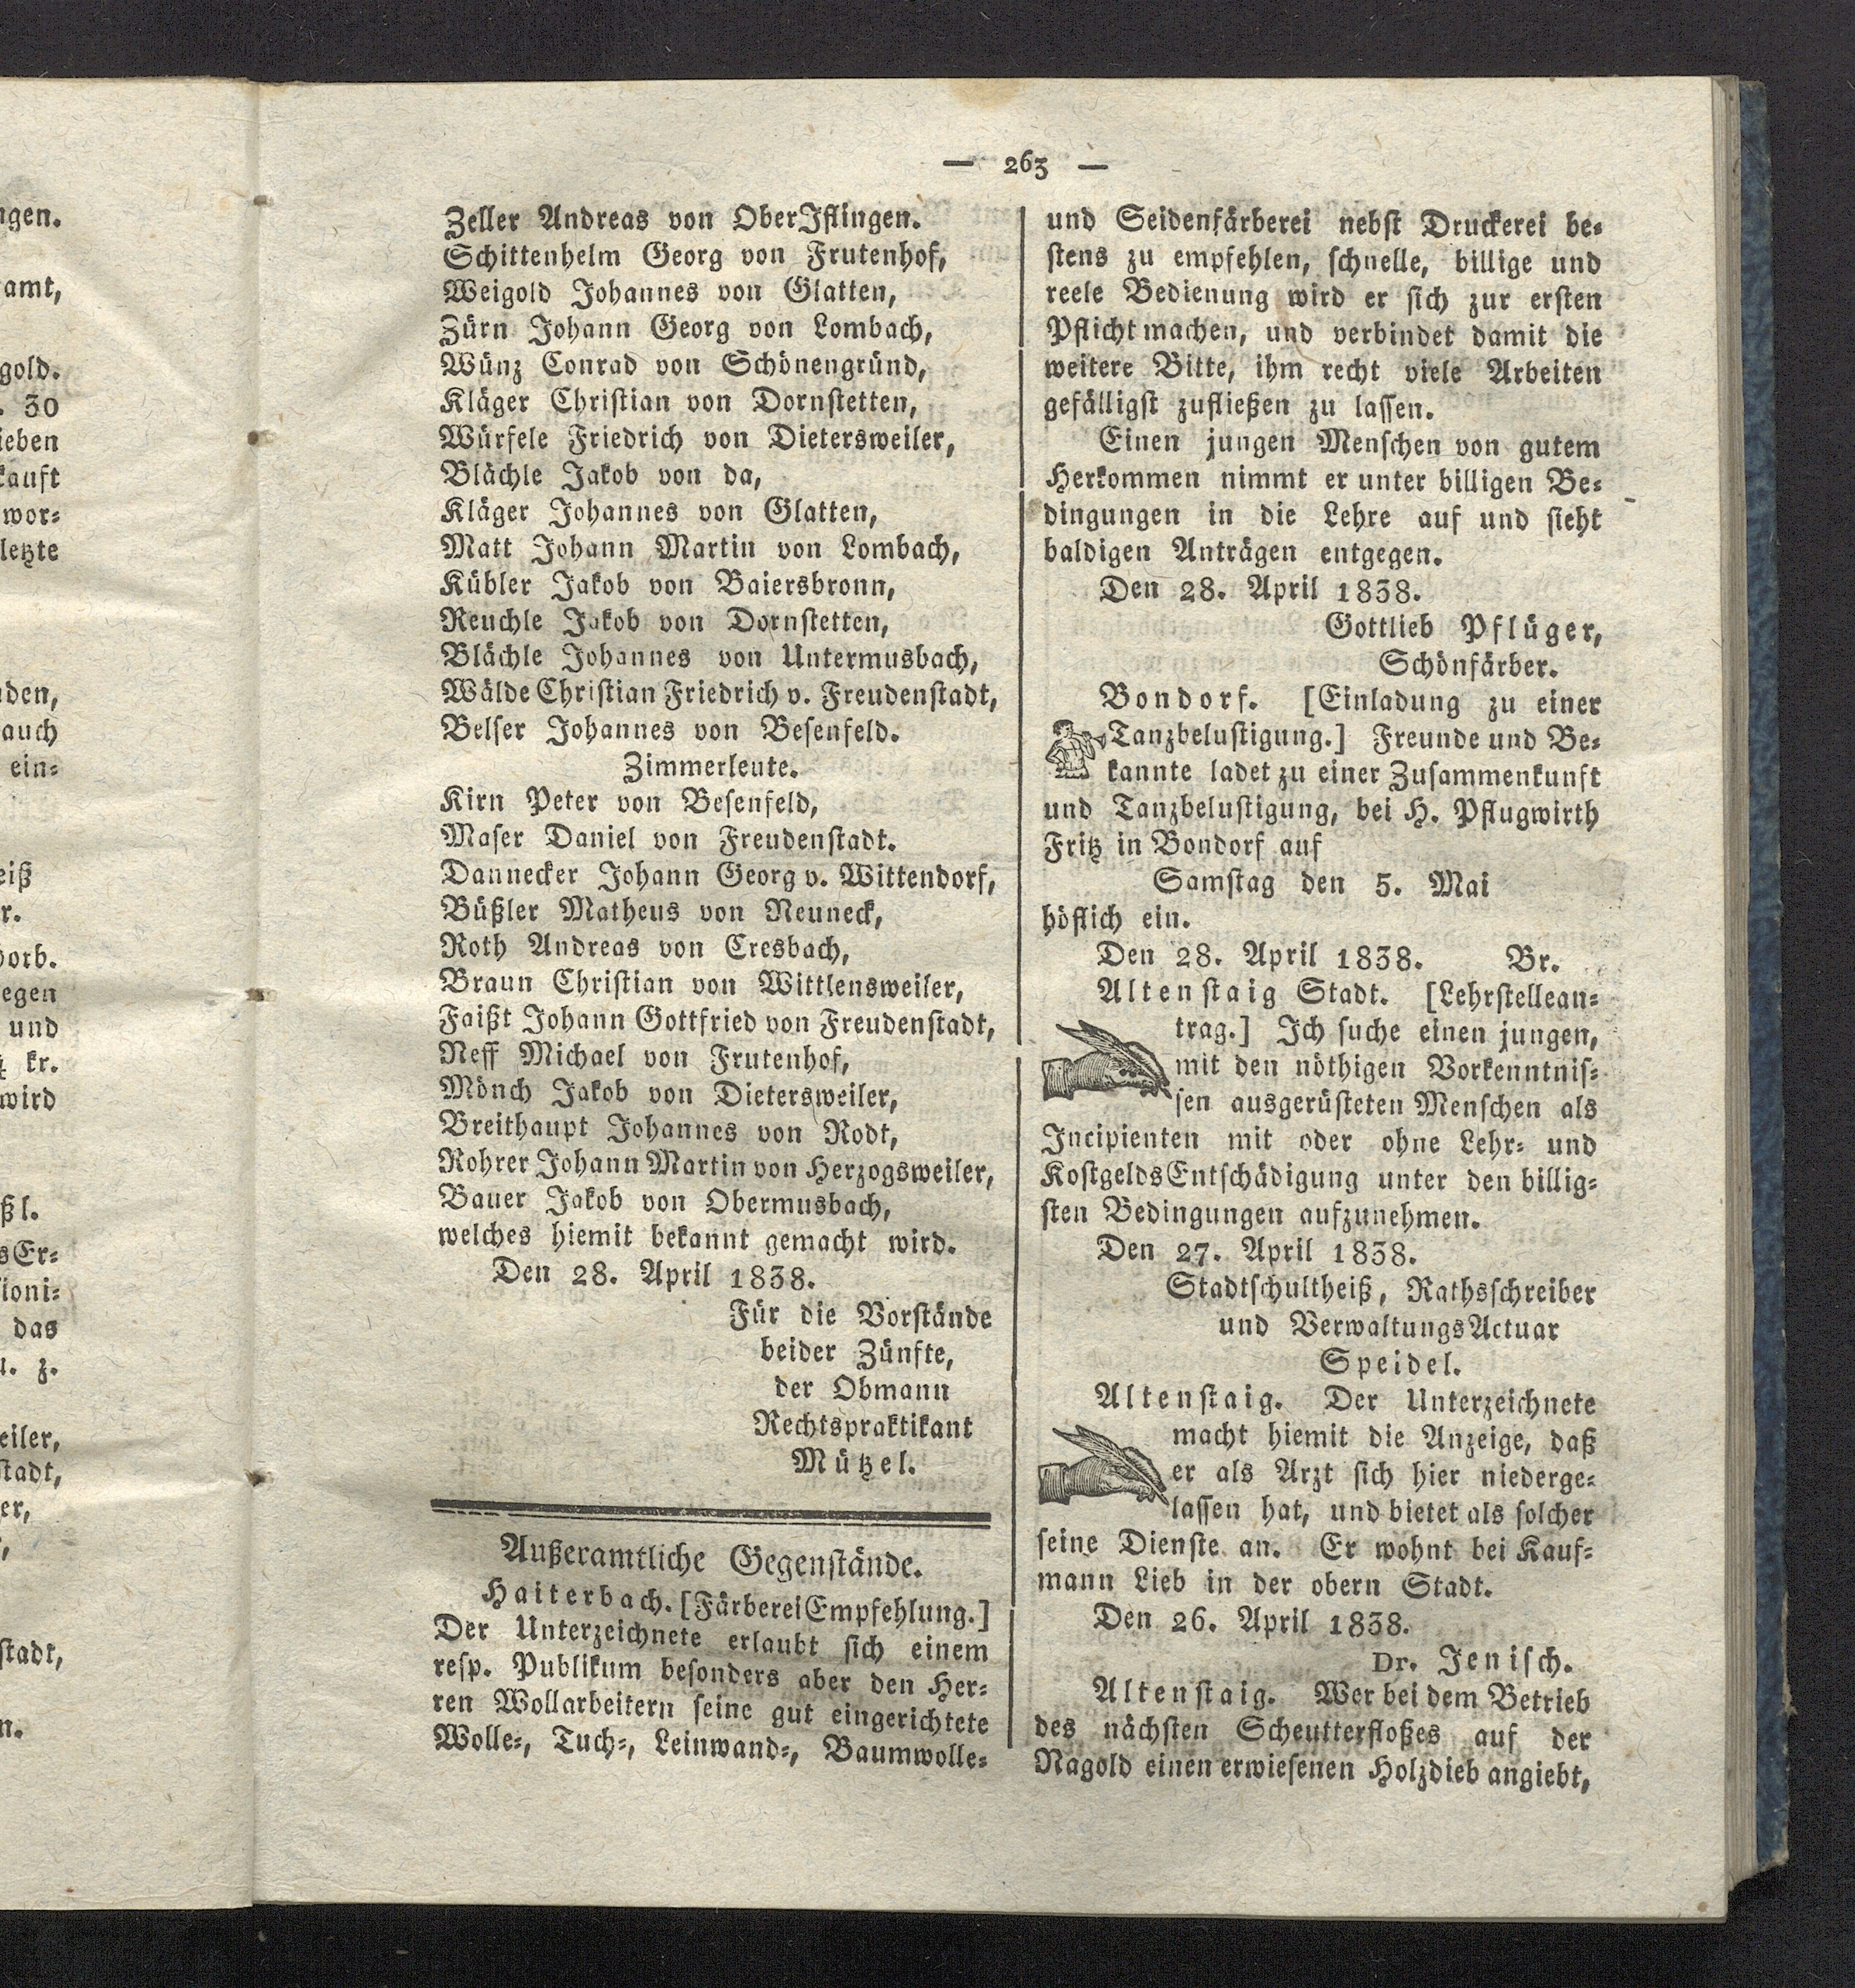 ngen.
amt,
gold.
. 30
ieben
kauft
wor⸗
letzte
den,
auch
ein⸗
eiß
r.
orb.
egen
und
kr.
wird
ßl.
sEr⸗
ioni⸗
das
u. z.
eiler,
stadt,
er,
stadt,
n.
— 263 —
Zeller Andreas von OberIflingen.
Schittenhelm Georg von Frutenhof,
Weigold Johannes von Glatten,
Zürn Johann Georg von Lombach,
Wünz Conrad von Schönengründ,
Kläger Christian von Dornstetten,
Würfele Friedrich von Dietersweiler,
Blächle Jakob von da,
Kläger Johannes von Glatten,
Matt Johann Martin von Lombach,
Kübler Jakob von Baiersbronn,
Reuchle Jakob von Dornstetten,
Blächle Johannes von Untermusbach,
Wälde Christian Friedrich v. Freudenstadt,
Belser Johannes von Besenfeld.
Zimmerleute.
Kirn Peter von Besenfeld,
Maser Daniel von Freudenstadt.
Dannecker Johann Georg v. Wittendorf,
Büßler Matheus von Neuneck,
Roth Andreas von Cresbach,
Braun Christian von Wittlensweiler,
Faißt Johann Gottfried von Freudenstadt,
Neff Michael von Frutenhof,
Mönch Jakob von Dietersweiler,
Breithaupt Johannes von Rodt,
Rohrer Johann Martin von Herzogsweiler,
Bauer Jakob von Obermusbach,
welches hiemit bekannt gemacht wird.
Den 28. April 1838.
Für die Vorstände
beider Zünfte,
der Obmann
Rechtspraktikant
Mützel.
Außeramtliche Gegenstände.
Haiterbach. [FärbereiEmpfehlung.]
Der Unterzeichnete erlaubt sich einem
resp. Publikum besonders aber den Her⸗
ren Wollarbeitern seine gut eingerichtete
Wolle⸗, Tuch⸗, Leinwand⸗, Baumwolle⸗
und Seidenfärberei nebst Druckerei be⸗
stens zu empfehlen, schnelle, billige und
reele Bedienung wird er sich zur ersten
Pflicht machen, und verbindet damit die
weitere Bitte, ihm recht viele Arbeiten
gefälligst zufließen zu lassen.
Einen jungen Menschen von gutem
Herkommen nimmt er unter billigen Be⸗
dingungen in die Lehre auf und sieht
baldigen Anträgen entgegen.
Den 28. April 1838.
Gottlieb Pflüger,
Schönfärber.
Bondorf. [Einladung zu einer
Tanzbelustigung.] Freunde und Be⸗
kannte ladet zu einer Zusammenkunft
und Tanzbelustigung, bei H. Pflugwirth
Fritz in Bondorf auf
Samstag den 5. Mai
höflich ein.
Den 28. April 1838. Br.
Altenstaig Stadt. [Lehrstellean⸗
trag.] Ich suche einen jungen,
mit den nöthigen Vorkenntnis⸗
sen ausgerüsteten Menschen als
Incipienten mit oder ohne Lehr⸗ und
KostgeldsEntschädigung unter den billig⸗
sten Bedingungen aufzunehmen.
Den 27. April 1838.
Stadtschultheiß, Rathsschreiber
und VerwaltungsActuar
Speidel.
Altenstaig. Der Unterzeichnete
macht hiemit die Anzeige, daß
er als Arzt sich hier niederge⸗
lassen hat, und bietet als solcher
seine Dienste an. Er wohnt bei Kauf⸗
mann Lieb in der obern Stadt.
Den 26. April 1838.
Dr. Jenisch.
Altenstaig. Wer bei dem Betrieb
des nächsten Scheutterfloßes auf der
Nagold einen erwiesenen Holzdieb angiebt,